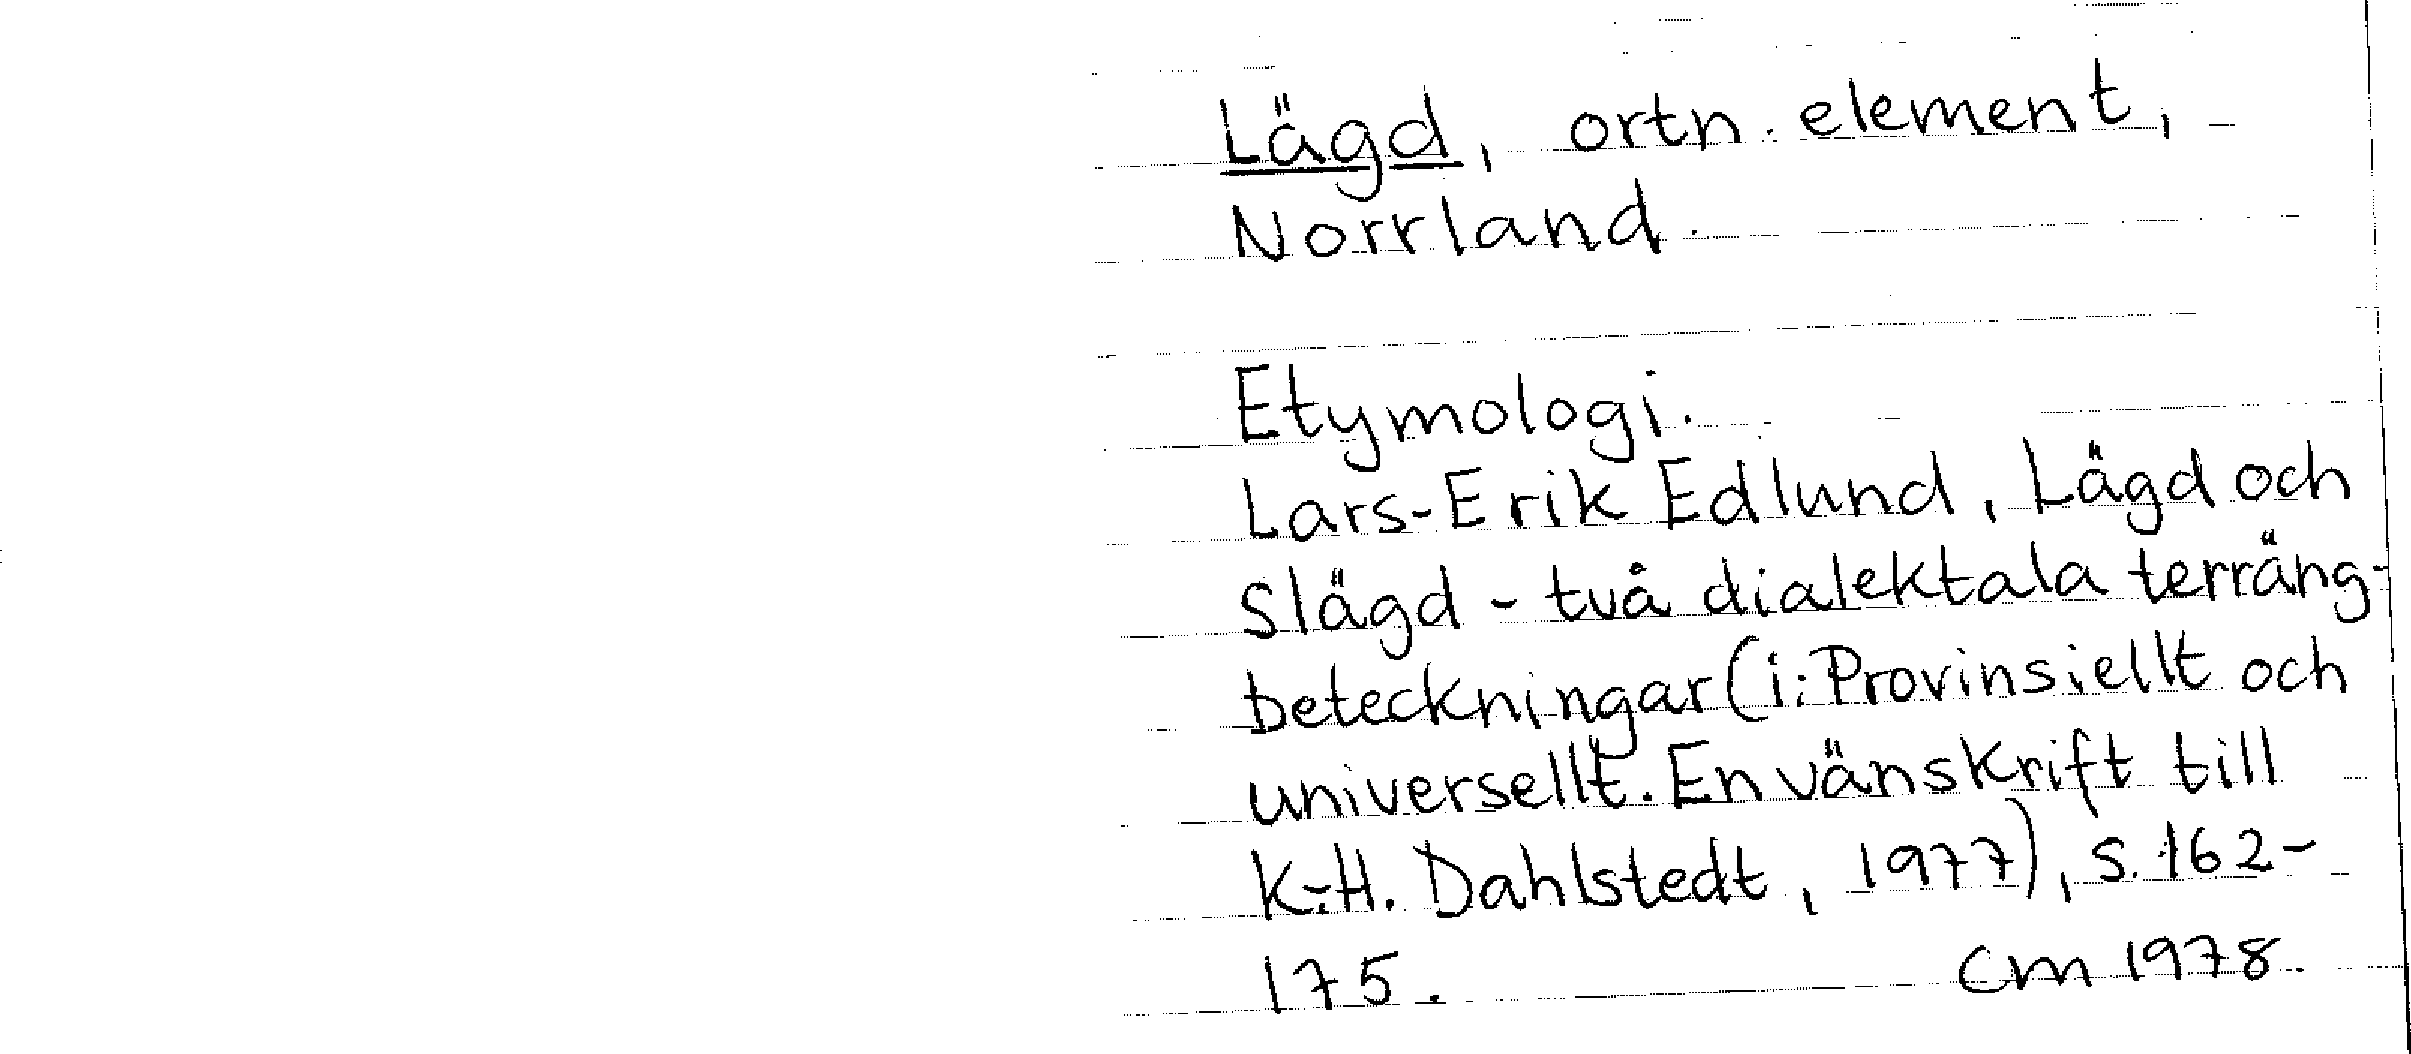 Lägd, ortn. element,
Norrland.
Etymologi.
Lars-Erik Edlund, Lägd och
Slägd - två dialektala terräng-
beteckningar (i: Provinsiellt och
universellt. En vänskrift till
K.-H. Dahlstedt, 1977), s. 162-
175.
CM 1978.